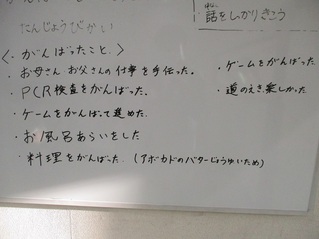 たんじょうびかい
はなし
話をしかりきこう
<・がんばったこと>
・お母さんお父さんの仕事を手伝った。
・PCR検査をがんばった。
・ゲームをがんばって進めた。
・お風呂あらいをした
・料理をがんばった.(アボカドのバターじょうゆいため)
・ゲームをがんばった.
・道のえき、楽しかった。